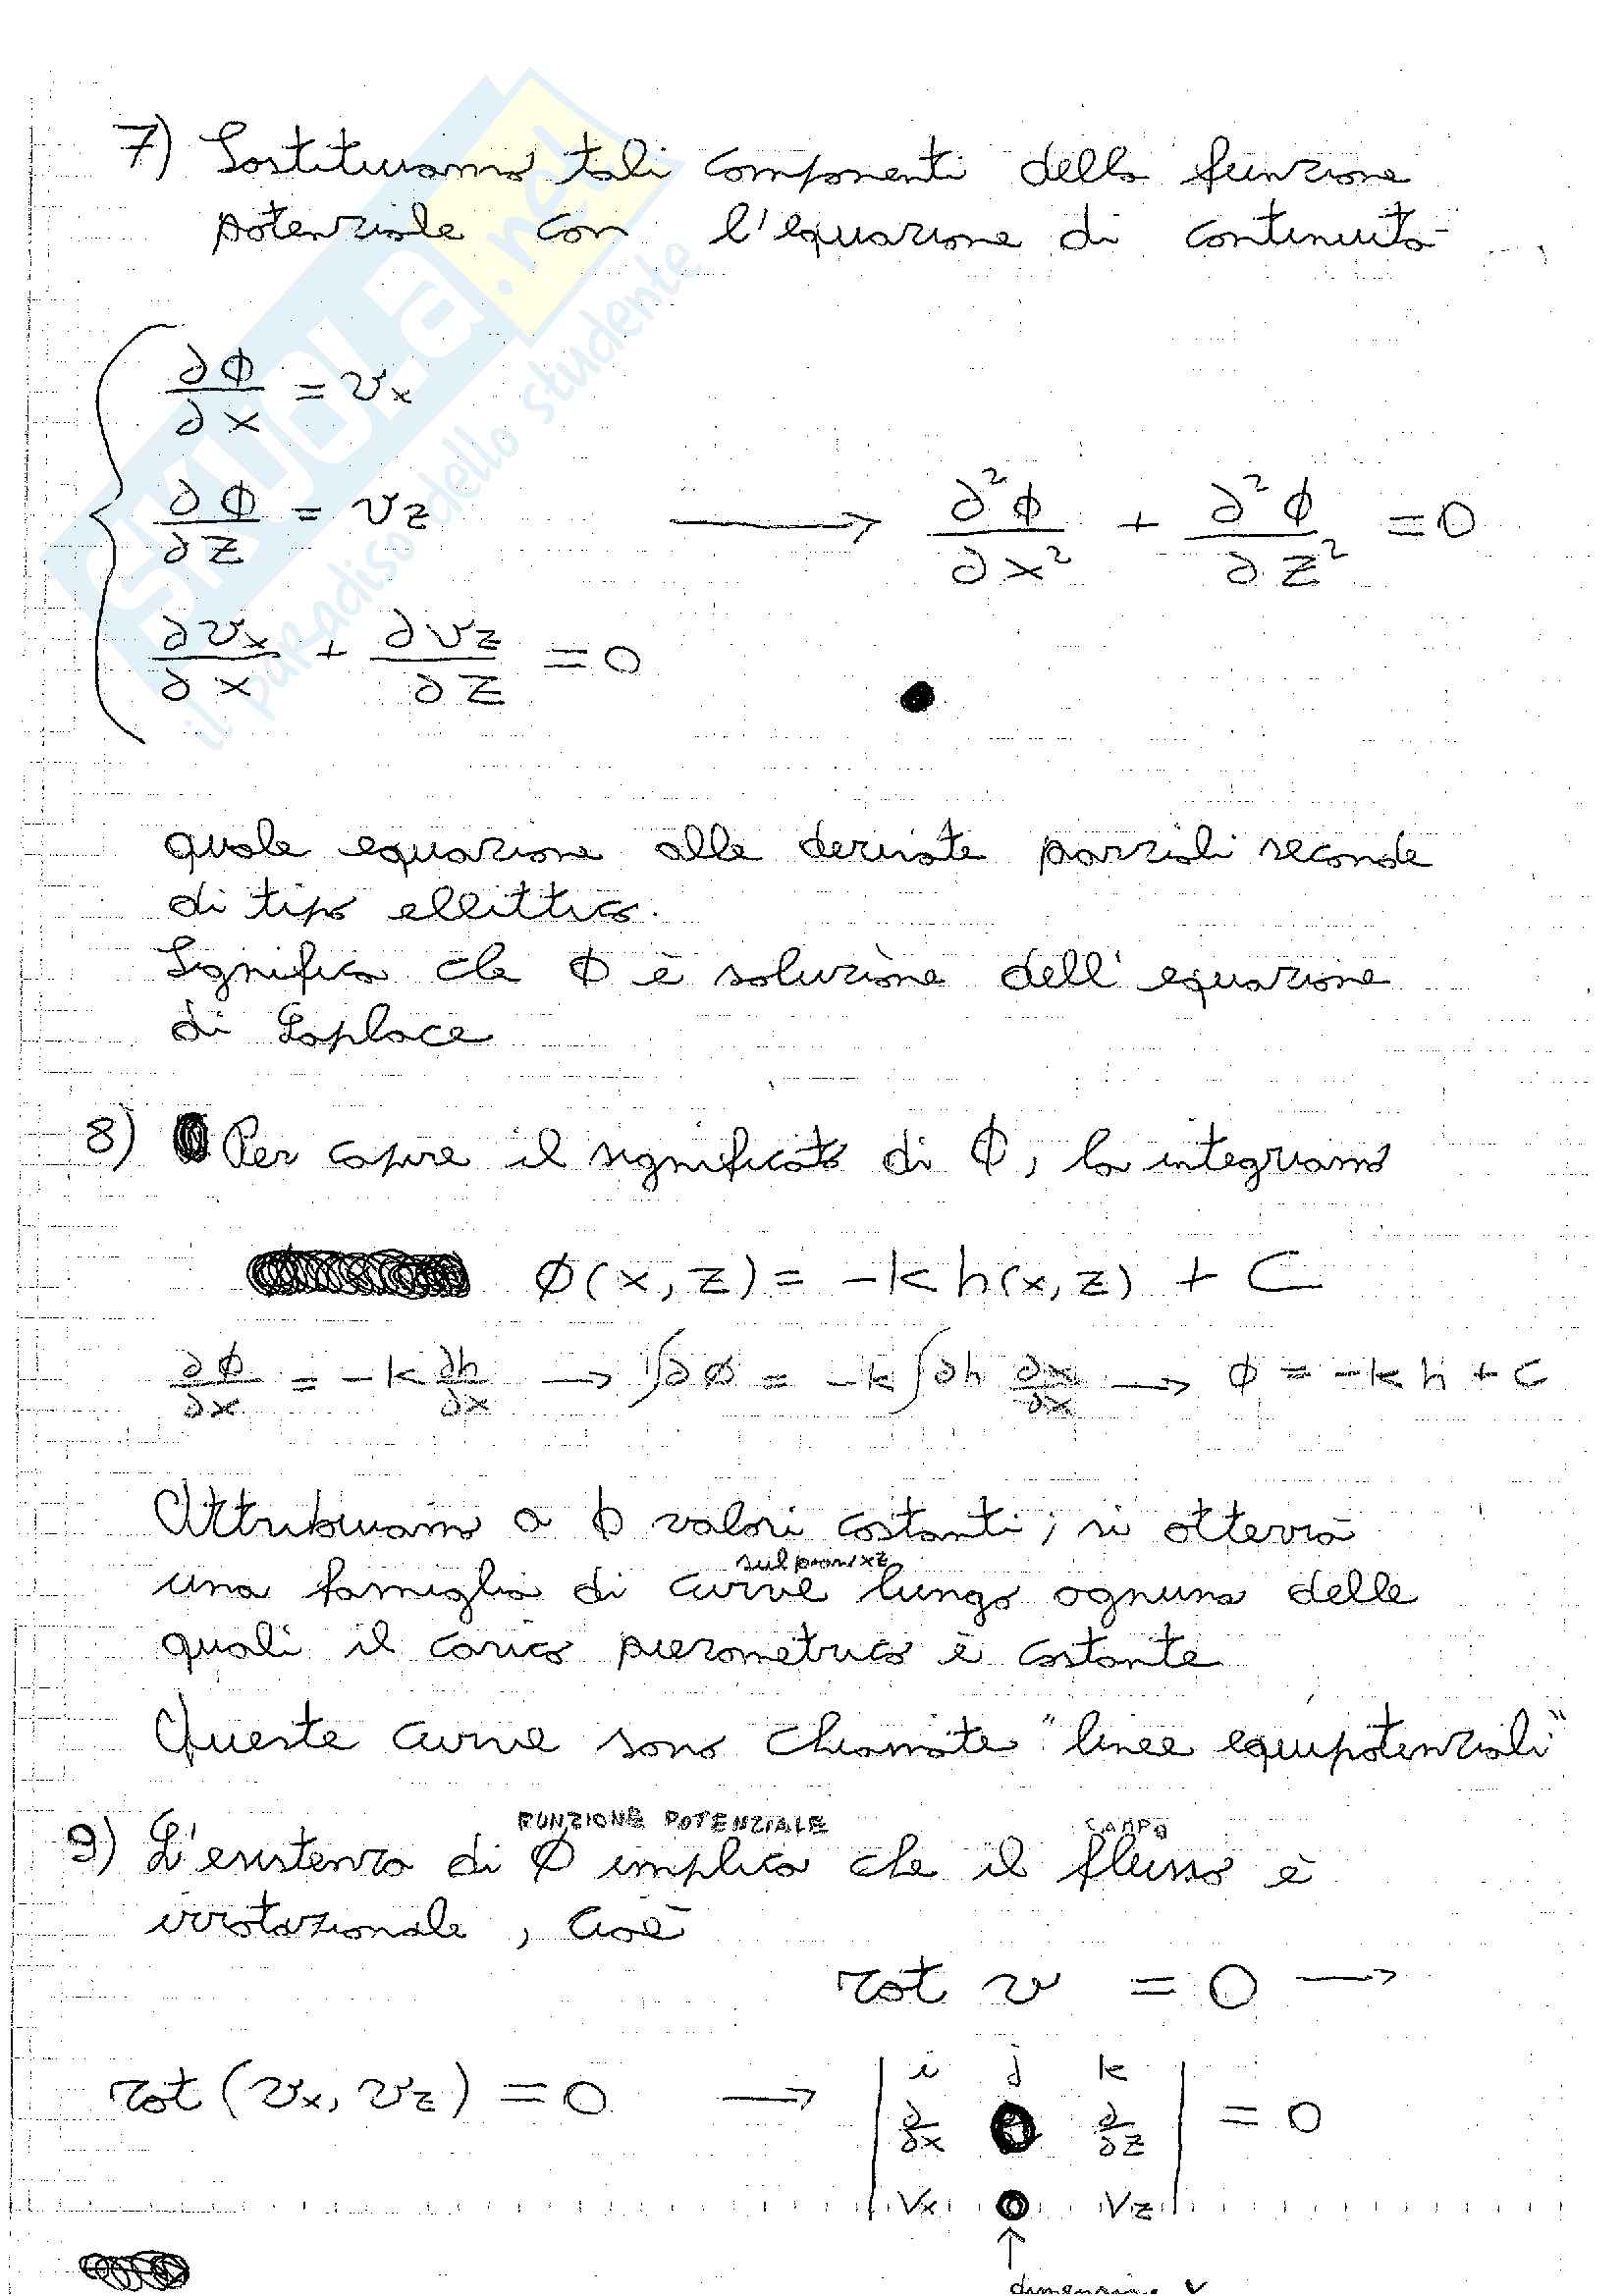 7) Sostituiamo tali componenti della funzione
potenziale con l'equazione di continuità
∂Φ/∂x = vx
∂Φ/∂z = vz → ∂²Φ/∂x² + ∂²Φ/∂z² = 0
∂vx/∂x + ∂vz/∂z = 0
quale equazione alle derivate parziali seconde
di tipo ellittico.
Significa che Φ è soluzione dell'equazione
di Laplace
8) Per capire il significato di Φ, la integriamo
Φ(x, z) = -k h(x, z) + C
∂Φ/∂x = -k ∂h/∂x → ∫∂Φ = -k ∫∂h ∂x/∂x → Φ = -k h + C
Attribuiamo a Φ valori costanti; si otterrà
sul piano xz
una famiglia di curve lungo ognuna delle
quali il carico piezometrico è costante
Queste curve sono chiamate "linee equipotenziali"
FUNZIONE POTENZIALE CAMPO
9) L'esistenza di Φ implica che il flusso è
irrotazionale, cioè
rot v = 0 →
rot (vx, vz) = 0 → | i j k |
| ∂/∂x ∂/∂z | = 0
| vx 0 vz |
↑
dimensione y
skuola.net
il paradiso dello studente